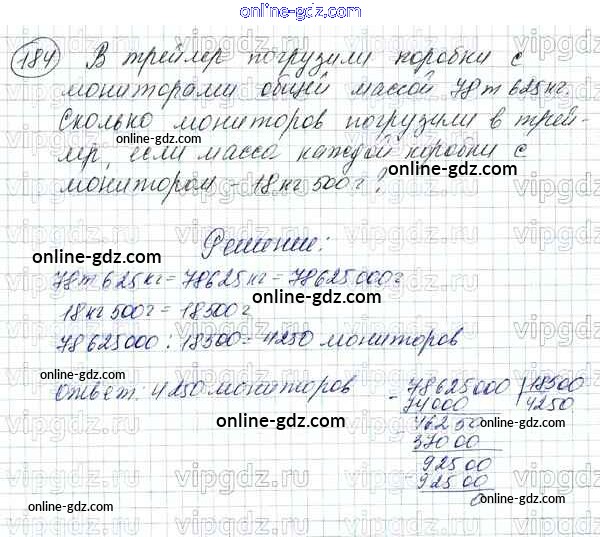 online-gdz.com
184 В трейлер погрузили коробки с
мониторами общей массой 78т 625кг.
Сколько мониторов погрузили в трей-
лер, если масса каждой коробки с
монитором - 18кг 500г?
online-gdz.com
online-gdz.com
Решение:
online-gdz.com
78т 625кг = 78625кг = 78625000г
online-gdz.com
18кг 500г = 18500г
78625000 : 18500 = 4250 мониторов
online-gdz.com
Ответ: 4250 мониторов
78625000 | 18500
74000 4250
online-gdz.com
46250
37000
online-gdz.com
92500
92500
online-gdz.com
0
online-gdz.com
vipgdz